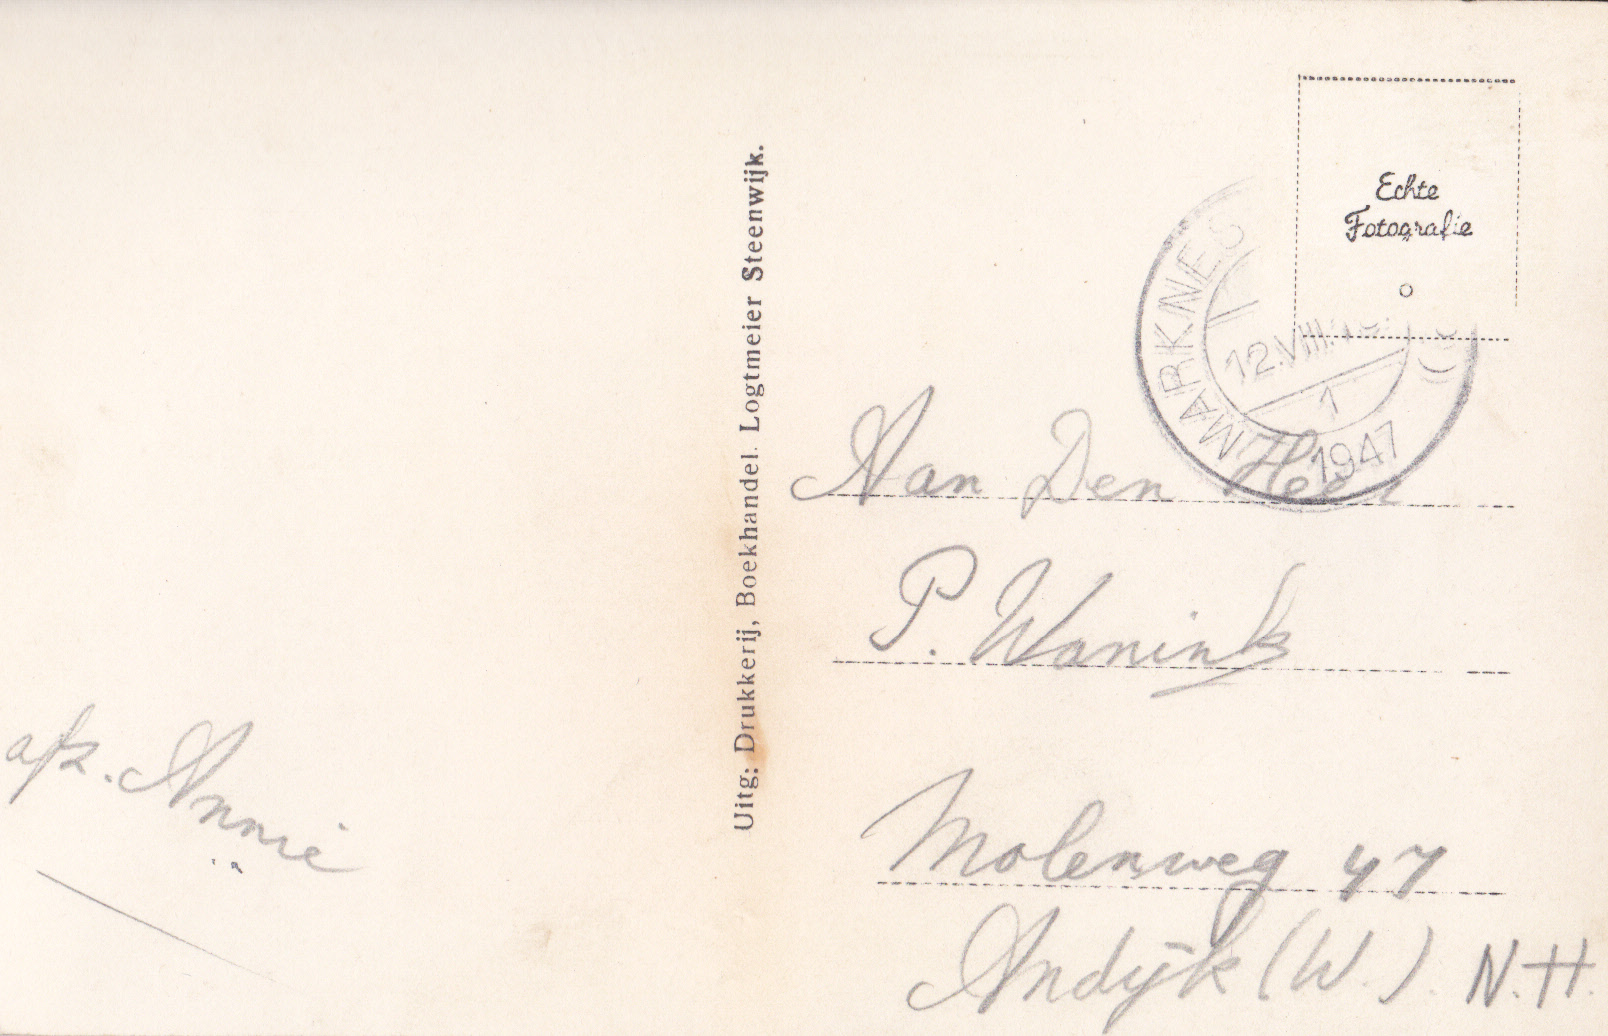 afz. Annie
Uitg: Drukkerij, Boekhandel. Logtmeier Steenwijk.
Echte
Fotografie
MARKNES
12.VIII.
1
1947
Aan Den Heer
P. Wanink
Molenweg 47
Andijk (W.) N.H.